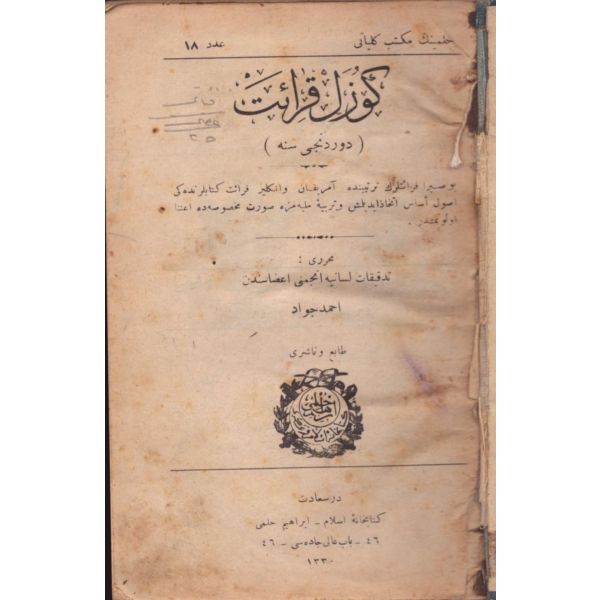 حلمینك مكتب كلیاتی
عدد ١٨
گوزل قرائت
( دوردنجی سنه )
بو صیرا قرائتلرك ترتیبنده آمریقان وانكلیز قرائت كتابلرنده كی
اصول اساس اتخاذ ایدیلمش و تربیهٔ ملیه مزه صورت مخصوصه ده اعتنا
اولونمشدر .
محرری :
تدقیقات لسانیه انجمنی اعضاسندن
احمد جواد
طابع و ناشری
درسعادت
كتابخانهٔ اسلام - ابراهیم حلمی
٤٦ - باب عالی جاده سی - ٤٦
١٣٣٠